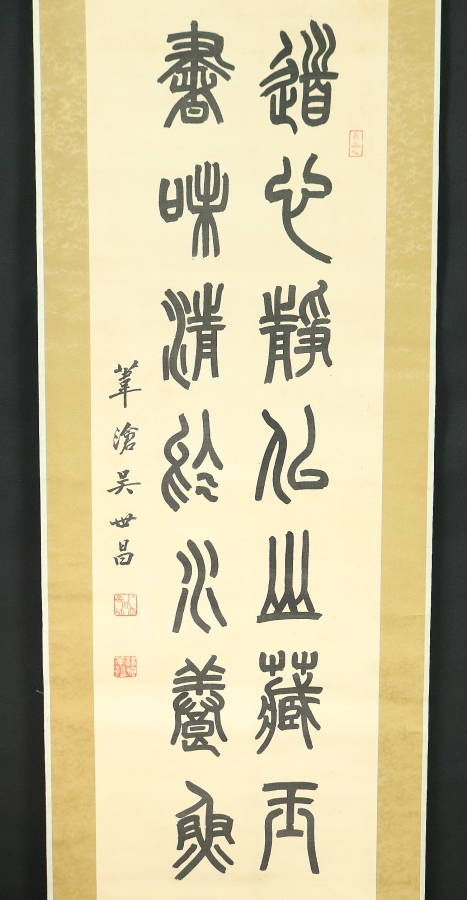 道心靜似山藏玉
書味清於水養魚
葦滄吳世昌